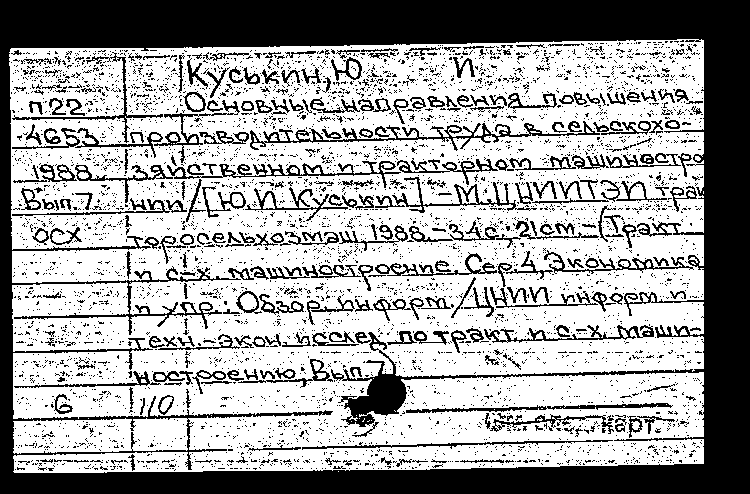 Куськин, Ю И
п22 Основные направления повышения
4653 производительности труда в сельскохо-
1988 зяйственном и тракторном машиностро
Вып.7 нии/[Ю.И. Куськин] -М.ЦНИИТЭИ трак
ОСХ торосельхозмаш, 1988.-34с.; 21см.-(Тракт
и с-х. машиностроение. Сер.4, Экономика
и упр.: Обзор. информ./ЦНИИ информ и
техн.-экон. исслед. по тракт. и с.-х. маши-
ностроению; Вып.7
6 110
карт.